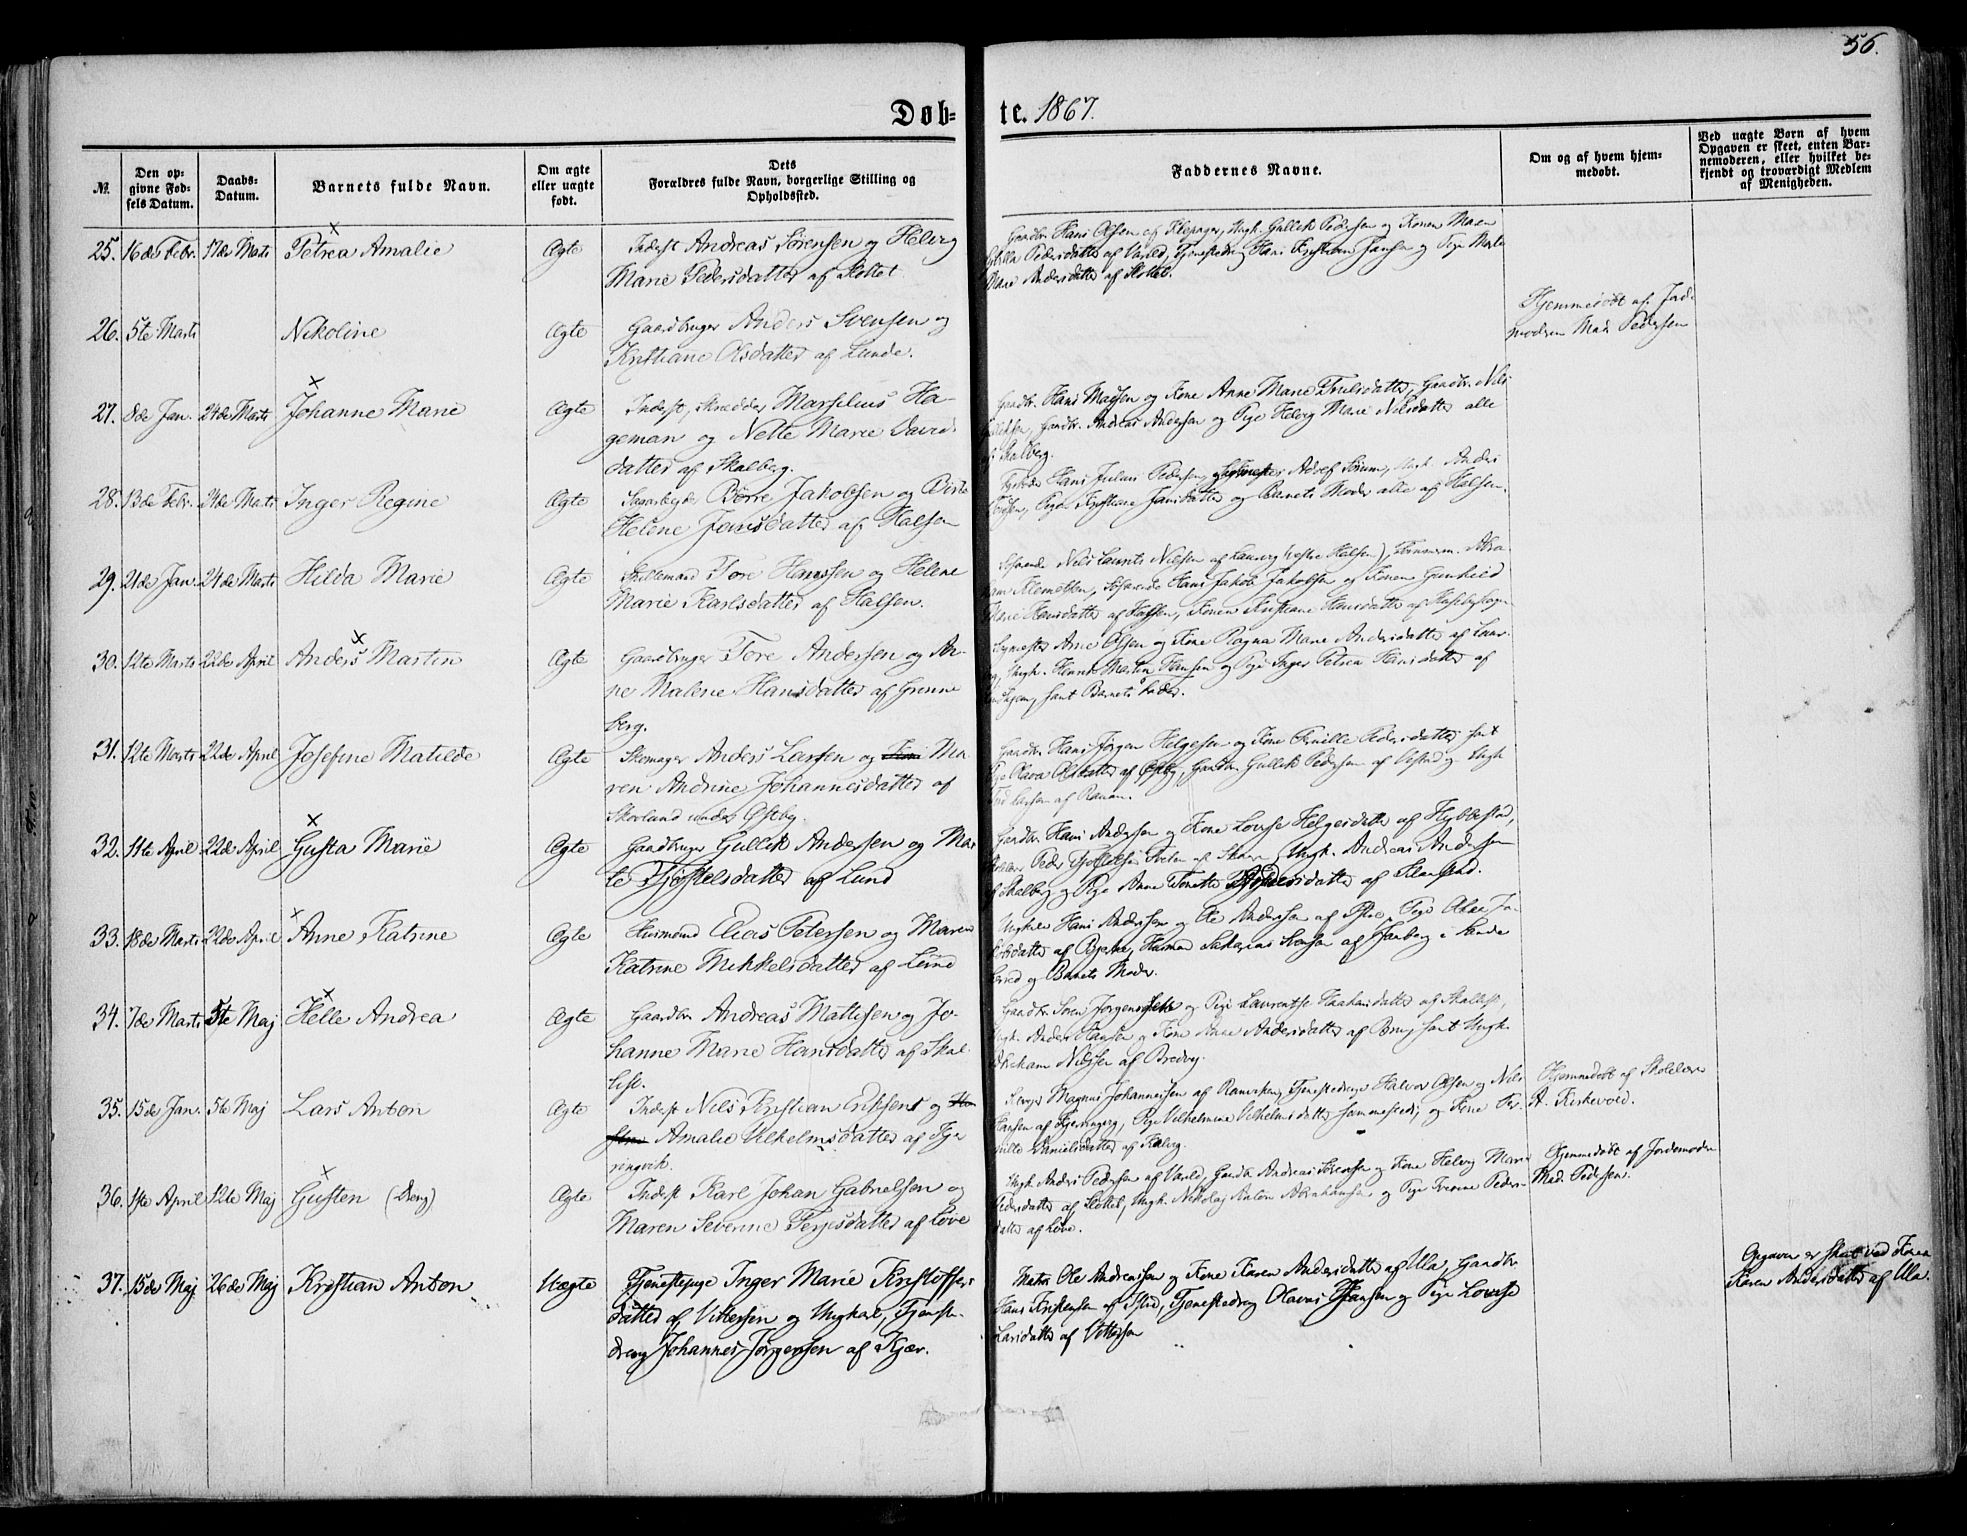 56.
Døb= te. 1867.
№.
Den op-
givne Fød-
sels Datum.
Daabs-
Datum.
Barnets fulde Navn.
Om ægte
eller uægte
født.
Dets
Forældres fulde Navn, borgerlige Stilling og
Opholdssted.
Faddernes Navne.
Om og af hvem hjem-
medøbt.
Ved uægte Børn af hvem
Opgaven er skeet, enten Bar-
nemoderen, eller hvilket be-
kjendt og troværdigt Medlem
af Menigheden.
25. 16de Febr. 17de Marts Petrea Amalie Ægte Inderst Andreas Sørensen og Helvig
Marie Pedersdatter af Slottet.
Gaardbr. Hans Olsen af Klepager, Ungk. Gullik Pedersen og Konen Maren
Pedersdatter af Varild, Tjenestedreng Hans Kristian Hansen og Pige Marte
Marie Andersdatter af Slottet.
26. 5te Marts Nikoline Ægte Gaardbruger Anders Svensen og
Kristiane Olsdatter af Lunde.
Hjemmedøbt af Jord-
modren Mad. Pedersen
27. 8de Jan. 24de Marts Johanne Marie Ægte Inderst, Skrædder Marselius Ha-
geman og Nette Marie David-
datter af Skalberg.
Gaardbr. Hans Madsen og Kone Anne Marie Truelsdatter, Gaardbr. Nils
Gulliksen, Gaardbr. Andreas Andersen og Pige Helvig Marie Nilsdatter alle
af Skalberg.
28. 13de Febr. 24de Marts Inger Regine Ægte Børre Jakobsen og Birte
Helene Jansdatter af Halsen
Hans Julius Pedersen, Adolf Sørum, Ungk. Anders
Pigen Kristiane Jansdatter og Barnets Moder alle af Halsen.
29. 21de Jan. 24de Marts Hilda Marie Ægte Skillemand Tore Hanssen og Helene
Marie Karlsdatter af Halsen.
Søfarende Nils Laurits Nilsen af Laurvig (vestre Halsen), Tømmerm. Abra-
ham Klemetsen, Søfarende Hans Jakob Jakobsen og Konen Gunhild
Marie Hansdatter af Halsen, Konen Kristiane Hansdatter af
30. 12te Marts 22de April Anders Martin Ægte Gaardbruger Tore Andersen og An-
ne Malene Hansdatter af Grønne
berg.
Arne Olsen og Kone Ragna Marie Andersdatter af Laur-
vig, Ungk. Henrik Martin Hansen og Pige Inger Petrea Hansdatter af
samt Barnets Fader.
31. 12te Marts 22de April Josefine Matilde Ægte Skomager Anders Larsen og Ma-
ren Andrine Johannesdatter af
Skovland under Østby.
Gaardbr. Hans Jørgen Helgesen og Kone Pernille Pedersdatter samt
Pige Olava Olsdatter af Østby, Gaardbr. Gullik Pedersen af og Ungk.
Larsen af Ranum.
32. 11te April 22de April Gusta Marie Ægte Gaardbruger Gullik Andersen og Mar-
te Tjøstelsdatter af Lund
Gaardbr. Hans Andersen og Kone Lovise Helgesdatter af Hybbestad,
Peder Ungk. Andreas Andersen
af Skalberg og Pige Anne Tonette af
33. 18de Marts 22de April Anne Katrine Ægte Husmand Elias Petersen og Maren
Katrine Mikkelsdatter af Lund
Ungkarl Hans Andersen og Ole Andersen af Pige Ja-
kobsdatter af Husmand Sakarias af i Sande
herred og Barnets Moder.
34. 7de Marts 5te Maj Helle Andrea Ægte Gaardbr. Andreas Mattisen og Jo-
hanne Marie Hansdatter af Skal-
list.
Gaardbr. Søren Jørgensen og Pige Laurentse Haakensdatter af Skallist,
Ungk. Anders Hansen og Kone Anne Andersdatter af samt Ungk.
Abraham Nilsen af Bredvej.
35. 15de Jan. 5te Maj Lars Anton Ægte Inderst Nils Kristian Eriksen og
Amalie Vilhelmsdatter af Fje-
ringvik.
Magnus Johannesen af Ranviken, Tjenestedrenge Halvor Olsen og Nils
Hansen af Pige Vilhelmine Vilhelmsdatter sammesteds, og Kone Per-
nille Danielsdatter af
Hjemmedøbt af Skolelærer
A. Kirkevold.
36. 1ste April 12te Maj Gusten (Dreng) Ægte Inderst Karl Johan Gabrielsen og
Maren Severine Terjesdatter af Løve
Ungk. Anders Pedersen af Varild, Gaardbr. Andreas Sørensen og Kone Helvig Marie
Pedersdatter af Slottet, Ungk. Nikolaj Anton Abrahamsen og Pige Peders-
datter af Løve.
Hjemmedøbt af Jordemoder
Mad. Pedersen.
37. 15de Maj 26de Maj Kristian Anton Uægte Tjenestepige Inger Marie Kristoffers-
datter af Vittersen og Ungkarl, Tjeneste-
dreng Johannes Jørgensen af Kjær.
Matros Ole Andreassen og Kone Karen Andersdatter af Ula, Gaardbr.
Hans Kristensen af Tjenestedreng Olavus Hansen og Pige Lovise
Larsdatter af Vittersen
Opgaven er skeet ved Konen
Karen Andersdatter af Ula.